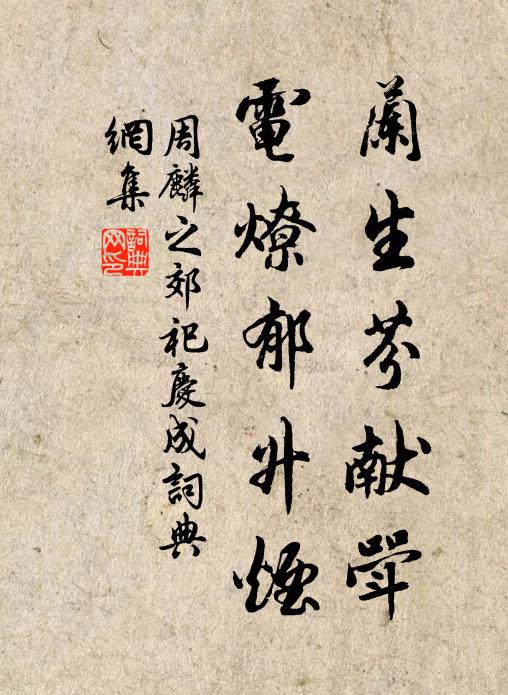 蘭生芬献斝
電燎郁升煙
周麟之郊祀慶成詞典
網集
詞典網印